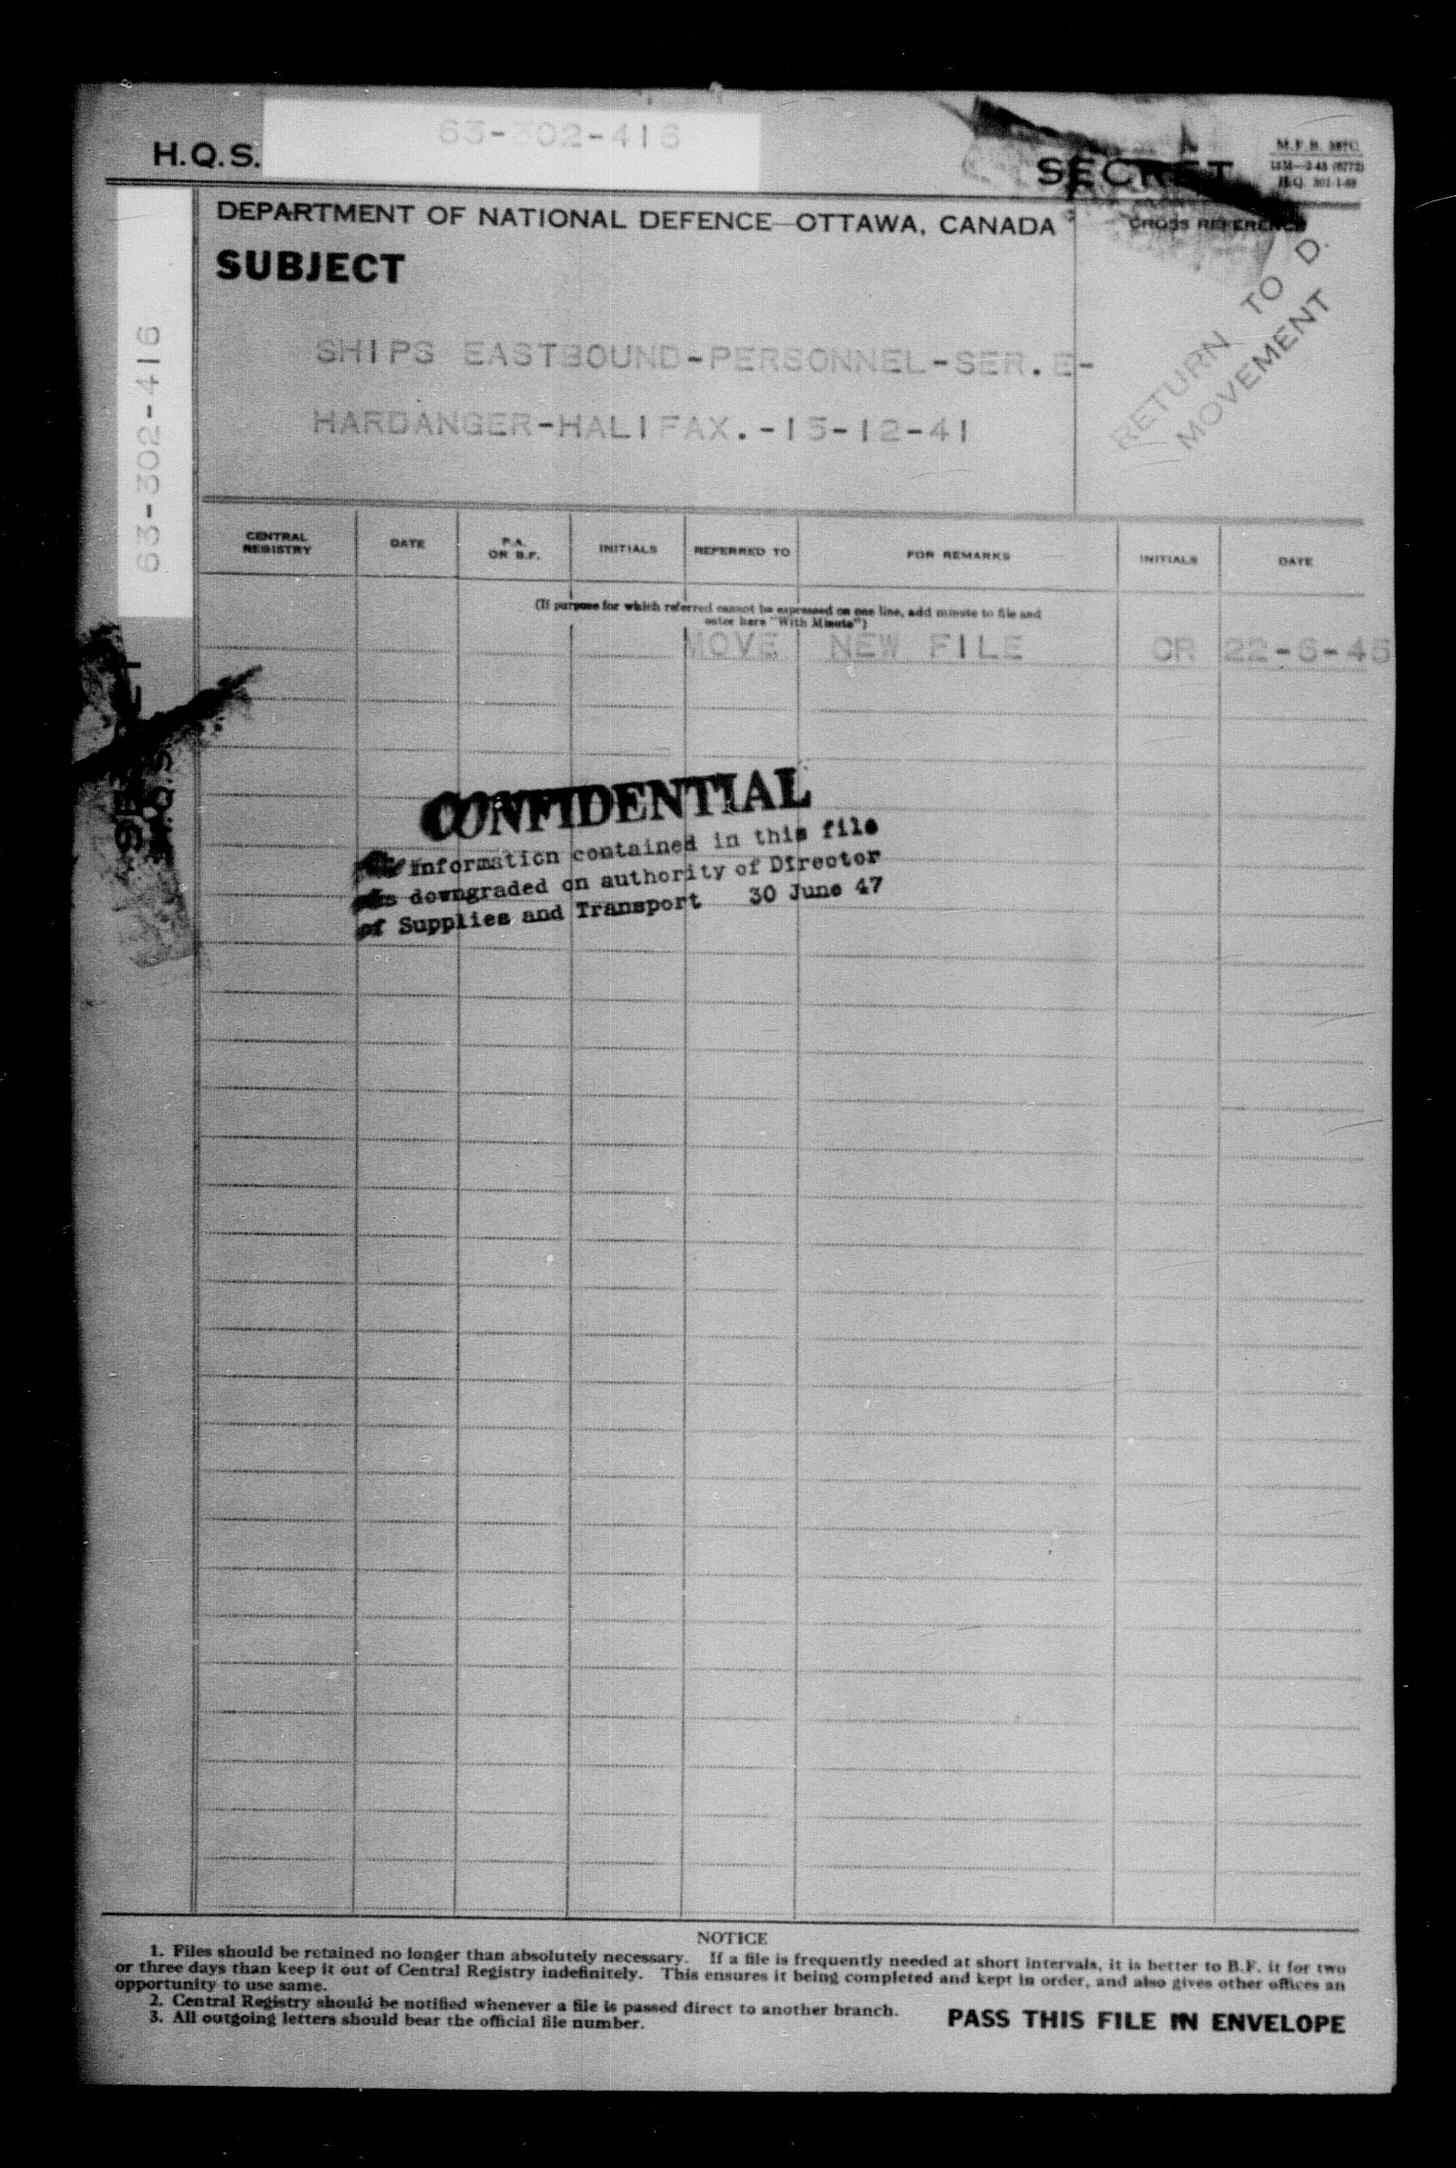 63-302-416
H.Q.S.
SECRET
M.F.B.
H.Q. 301-1-69
DEPARTMENT OF NATIONAL DEFENCE—OTTAWA, CANADA
CROSS REFERENCE
SUBJECT
RETURN TO D.
MOVEMENT
SHIPS EASTBOUND-PERSONNEL-SER.E-
HARDANGER-HALIFAX.-15-12-41
63-302-416
CENTRAL REGISTRY DATE P.A. OR B.F. INITIALS REFERRED TO FOR REMARKS INITIALS DATE
(If purpose for which referred cannot be expressed on one line, add minute to file and
enter here "With Minute")
MOVE NEW FILE CR 22-6-45
CONFIDENTIAL
Information contained in this file
downgraded on authority of Director
of Supplies and Transport 30 June 47
NOTICE
1. Files should be retained no longer than absolutely necessary. If a file is frequently needed at short intervals, it is better to B.F. it for two
or three days than keep it out of Central Registry indefinitely. This ensures it being completed and kept in order, and also gives other offices an
opportunity to use same.
2. Central Registry should be notified whenever a file is passed direct to another branch.
3. All outgoing letters should bear the official file number.
PASS THIS FILE IN ENVELOPE